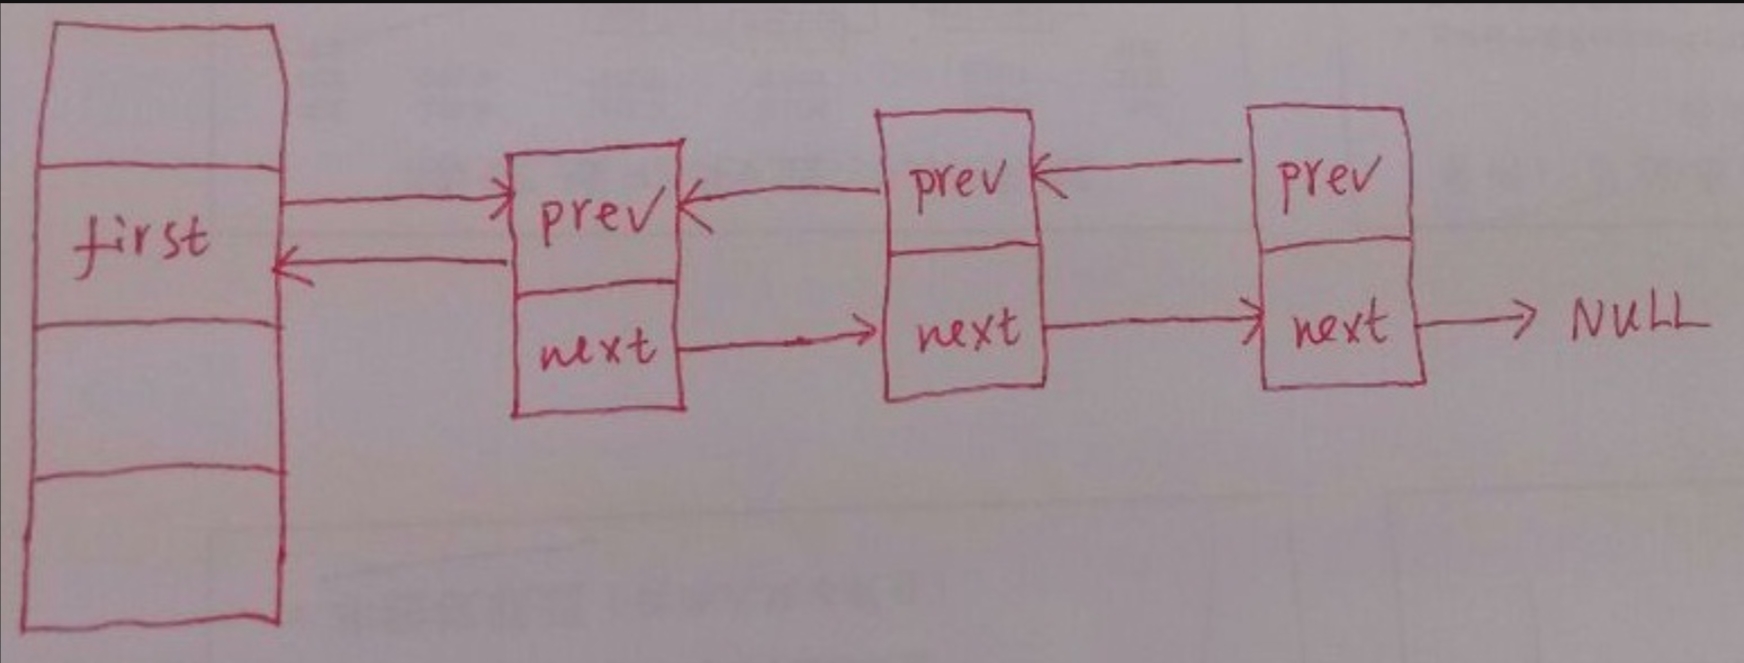 first
prev
next
prev
next
prev
next
NULL